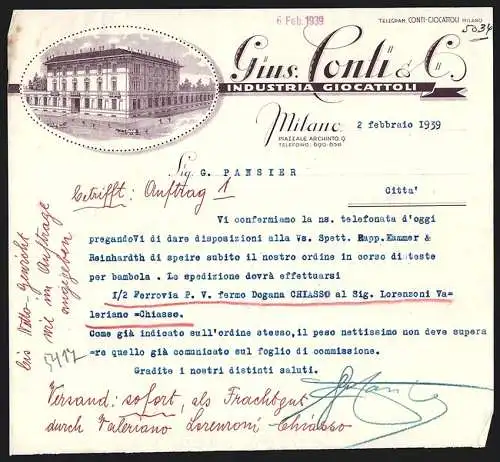 6 Feb. 1939
TELEGRAM. CONTI-GIOCATTOLI MILANO
5034
Gius. Conti & C.
INDUSTRIA GIOCATTOLI
Milano
PIAZZALE ARCHINTO, 9
TELEFONO: 690-858
2 febbraio 1939
Sig. G. PANSIER
Betrifft: Auftrag 1
Citta'
Vi confermiamo la ns. telefonata d'oggi
pregandoVi di dare disposizioni alla Vs. Spett. Rapp. Emmer &
Reinhardth di speire subito il nostro ordine in corso di teste
per bambola. La spedizione dovrà effettuarsi
I/2 Ferrovia P. V. fermo Dogana CHIASSO al Sig. Lorenzoni Va-
leriano =Chiasso.
Come già indicato sull'ordine stesso, il peso nettissimo non deve supera
=re quello già comunicato sul foglio di commissione.
Gradite i nostri distinti saluti.
Netto-Gewicht
wie im Auftrage
angegeben
5417
Versand: sofort, als Frachtgut
durch Valeriano Lorenzoni Chiasso